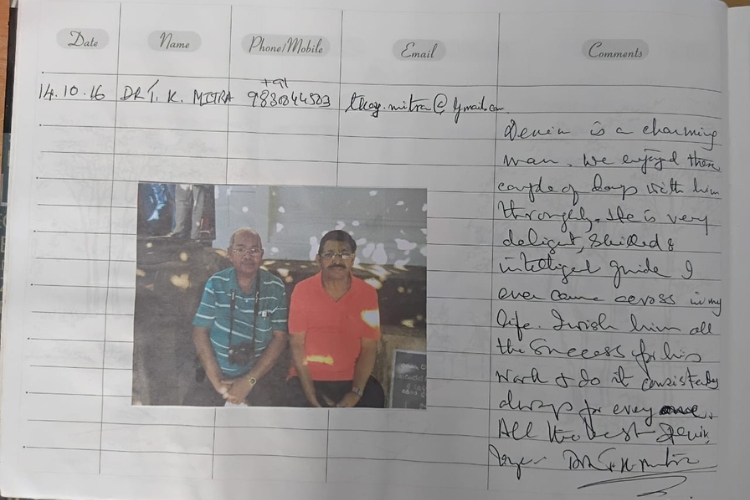 Date Name Phone/Mobile Email Comments
+91
14.10.16 DR T. K. MITRA 9830044503 @gmail.com
is a charming
man. We enjoyed these
couple of days with him
throughly. He is very
deligent, skilled &
intelligent guide I
ever came across in my
life. I wish him all
the success for his
work & do it consistently
always for every one.
All the best
Dr. T. K. Mitra